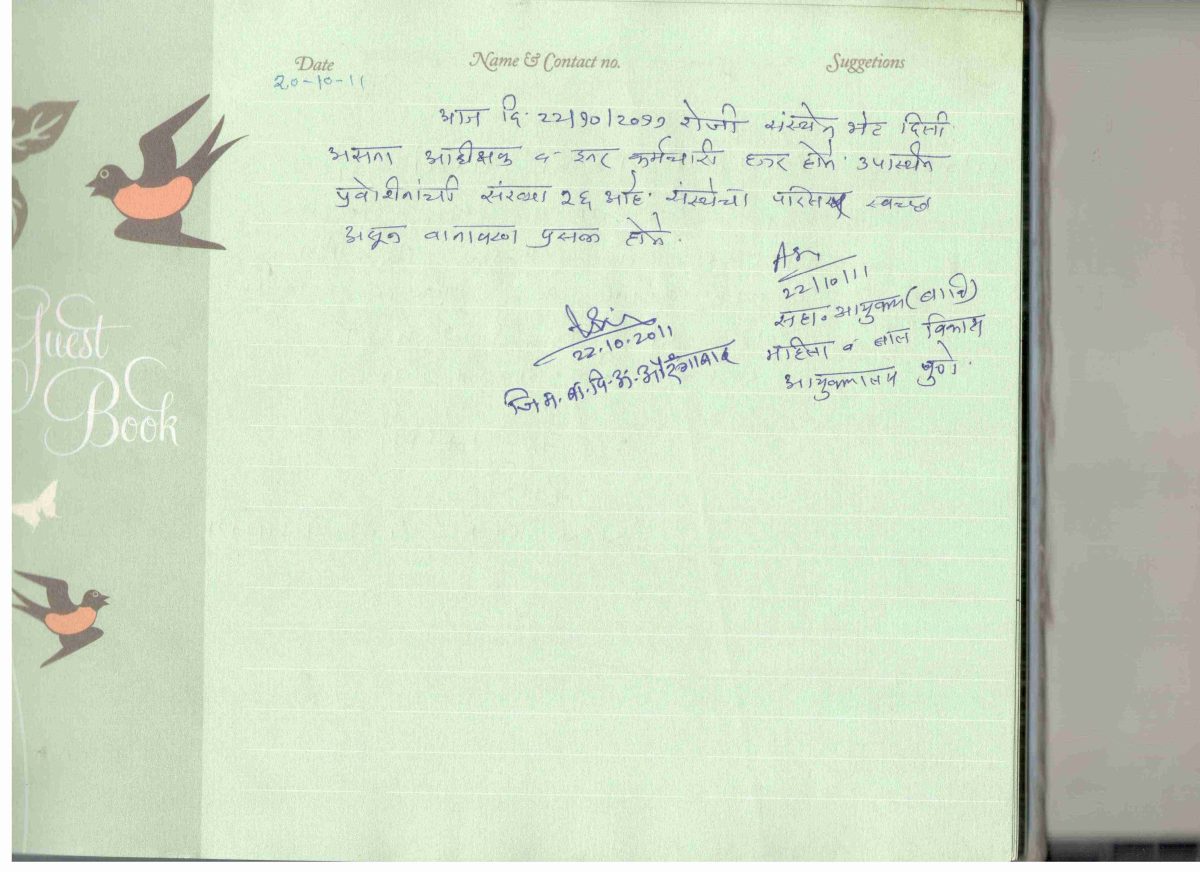 Date Name & Contact no. Suggetions
20-10-11
आज दि. 22/१०/2०११ रोजी संस्थेस भेट दिली
असता अधीक्षक व इतर कर्मचारी हजर होते. उपास्थीत
प्रवेशीतांची संख्या २६ आहे. संस्थेचा परिसर स्वच्छ
असून वातावरण प्रसन्न होते.
22/10/11
सहा. आयुक्त (बावि)
महिला व बाल विकास
आयुक्तालय पुणे.
22.10.2011
जि.म.बा.वि.अ. औरंगाबाद
Guest
Book